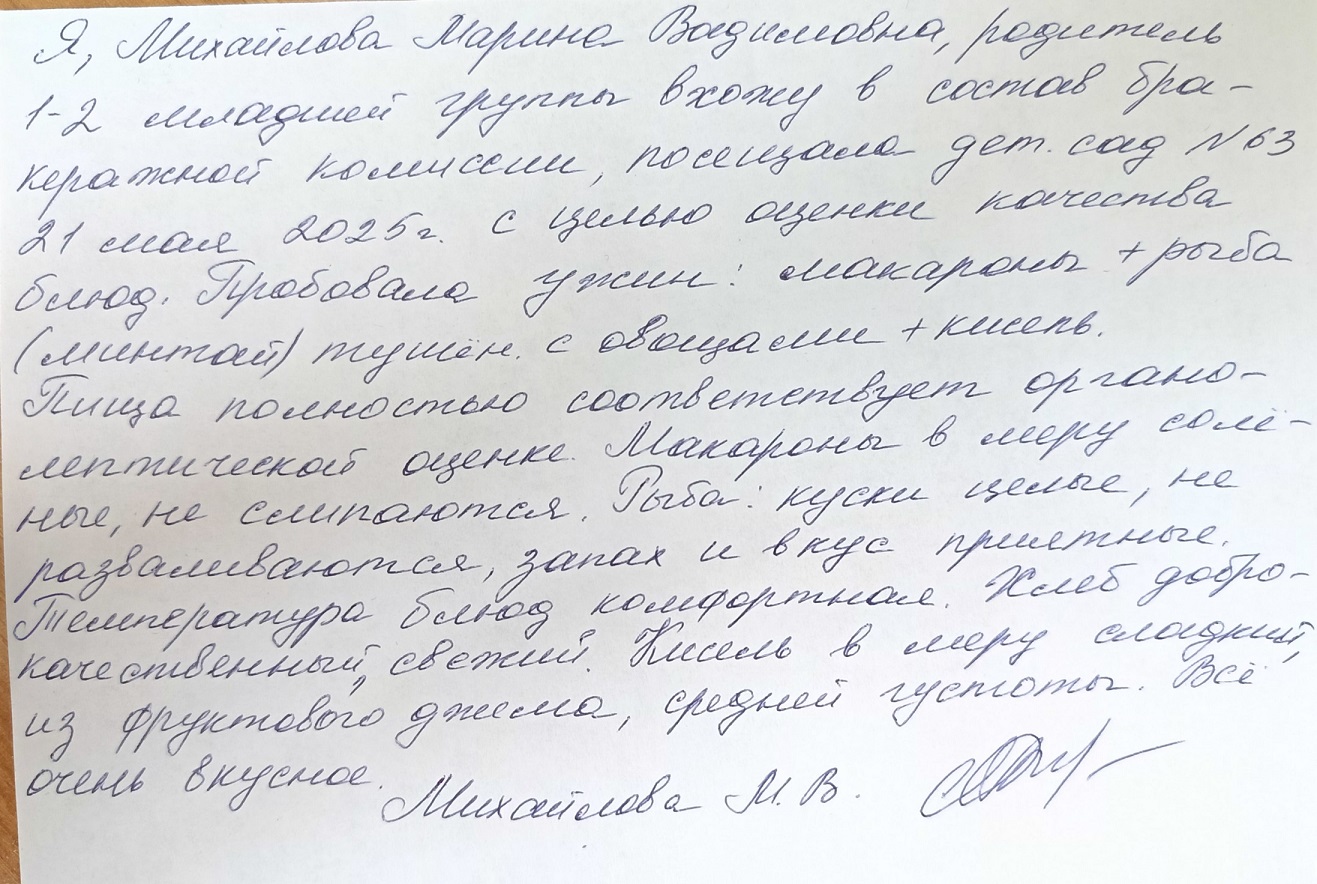 Я, Михайлова Марина Вадимовна, родитель
1-2 младшей группы вхожу в состав бра-
керажной комиссии, посещала дет. сад №63
21 мая 2025г. с целью оценки качества
блюд. Пробовала ужин: макароны + рыба
(минтай) тушён. с овощами + кисель.
Пища полностью соответствует органо-
лептической оценке. Макароны в меру солё-
ные, не слипаются. Рыба: куски целые, не
разваливаются, запах и вкус приятные.
Температура блюд комфортная. Хлеб добро-
качественный, свежий. Кисель в меру сладкий,
из фруктового джема, средней густоты. Всё
очень вкусное.
Михайлова М. В.